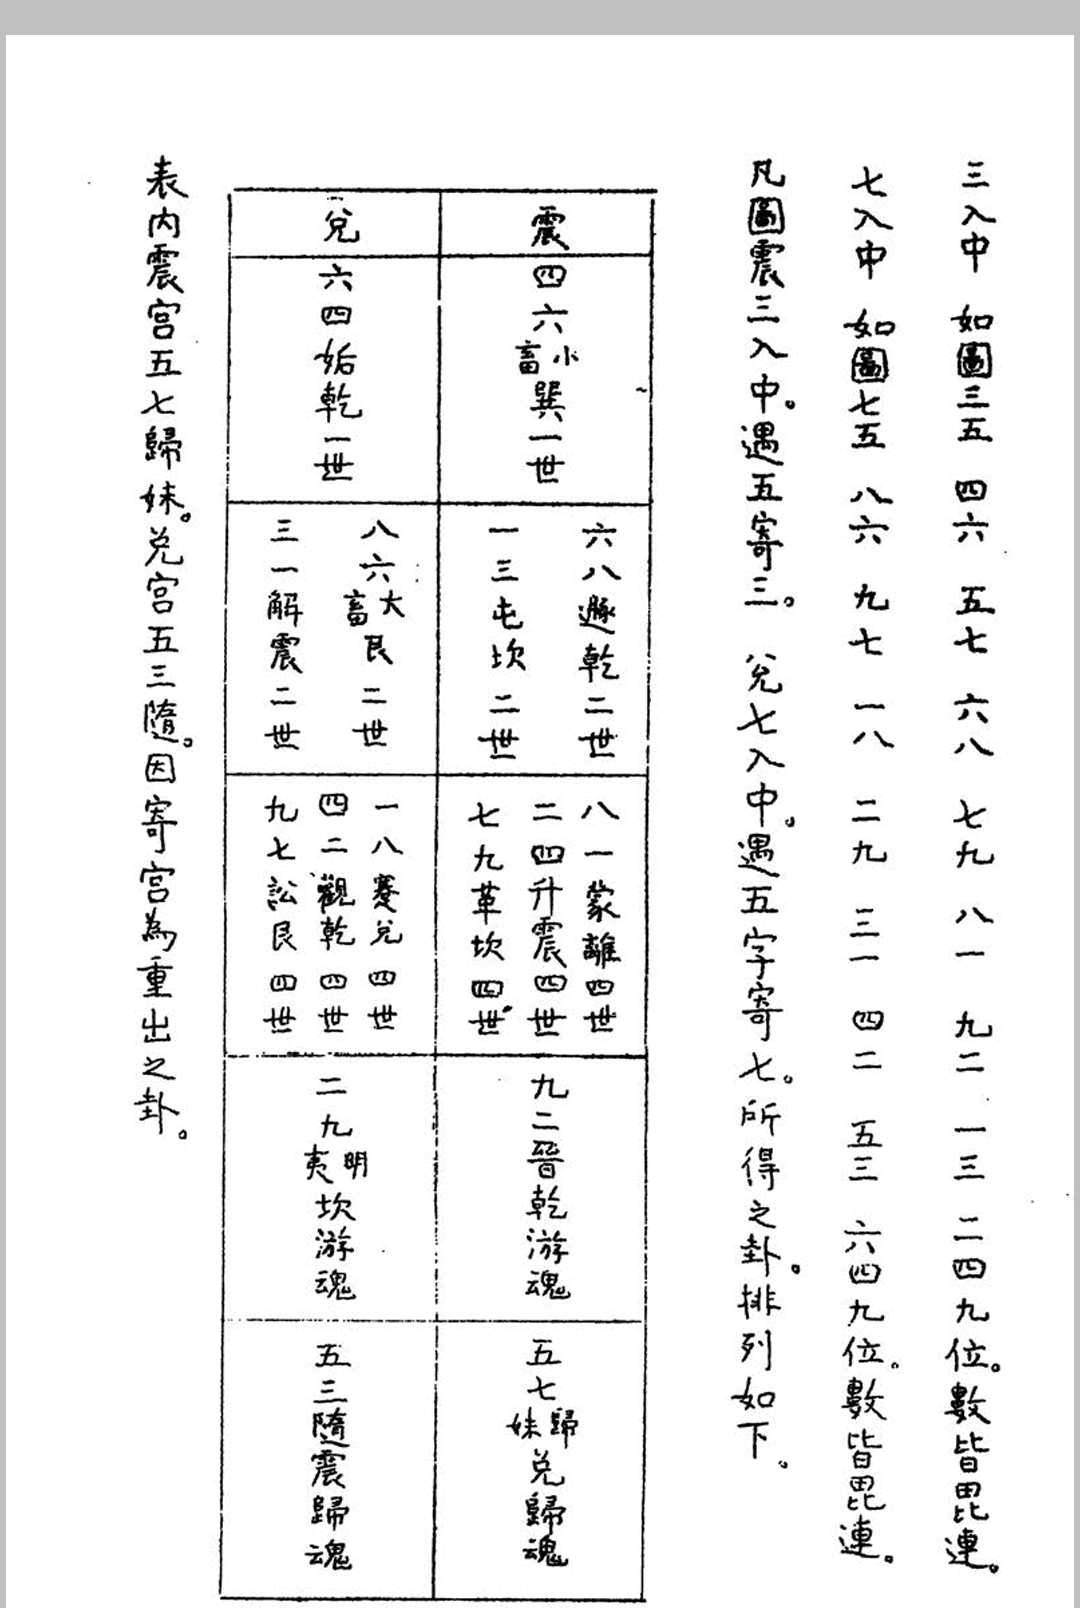 三入中 如圖三五 四六 五七 六八 七九 八一 九二 一三 二四九位。數皆毘連。
七入中 如圖七五 八六 九七 一八 二九 三一 四二 五三 六四九位。數皆毘連。
凡圖震三入中。遇五寄三。 兌七入中。遇五字寄七。所得之卦。排列如下。
震
四六小畜巽一世
六八遯乾二世
一三屯坎二世
八一蒙離四世
二四升震四世
七九革坎四世
九二晉乾游魂
五七歸妹兌歸魂
兌
六四姤乾一世
八六大畜艮二世
三一解震二世
一八蹇兌四世
四二觀乾四世
九七訟艮四世
二九明夷坎游魂
五三隨震歸魂
表內震宮五七歸妹。兌宮五三隨。因寄宮為重出之卦。